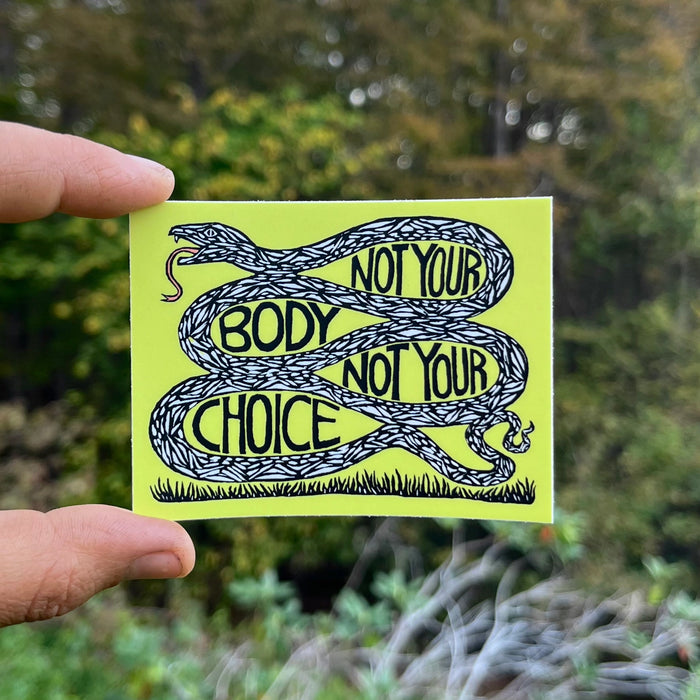 NOT YOUR
BODY
NOT YOUR
CHOICE